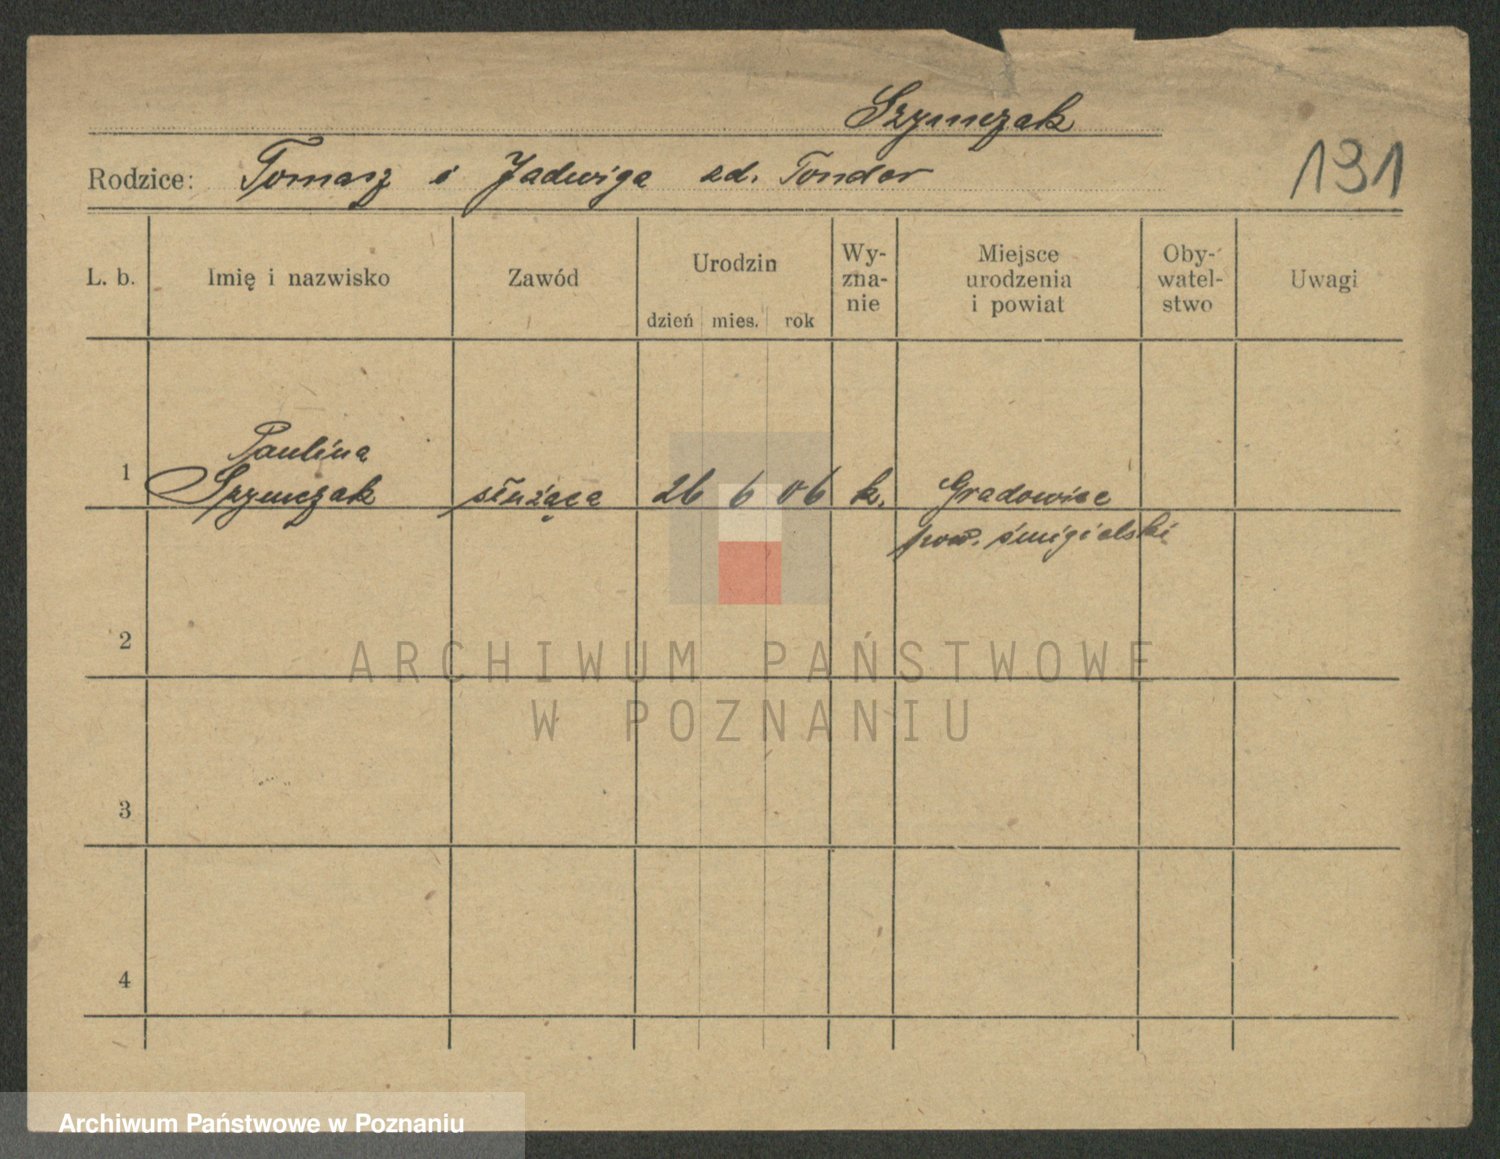 Szymczak
Rodzice: Tomasz i Jadwiga zd. Tondor
131
L. b. Imię i nazwisko Zawód Urodzin Wy- zna- nie Miejsce urodzenia i powiat Oby- watel- stwo Uwagi
dzień mies. rok
Paulina
1 Szymczak służąca 26 6 06 k. Gradowice
pow. śmigielski
2
ARCHIWUM PAŃSTWOWE
W POZNANIU
3
4
Archiwum Państwowe w Poznaniu